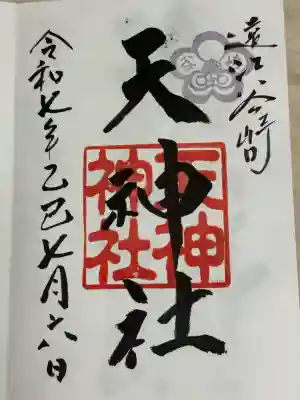 遠江
天神社
天神
神社
令和七年乙巳七月六日